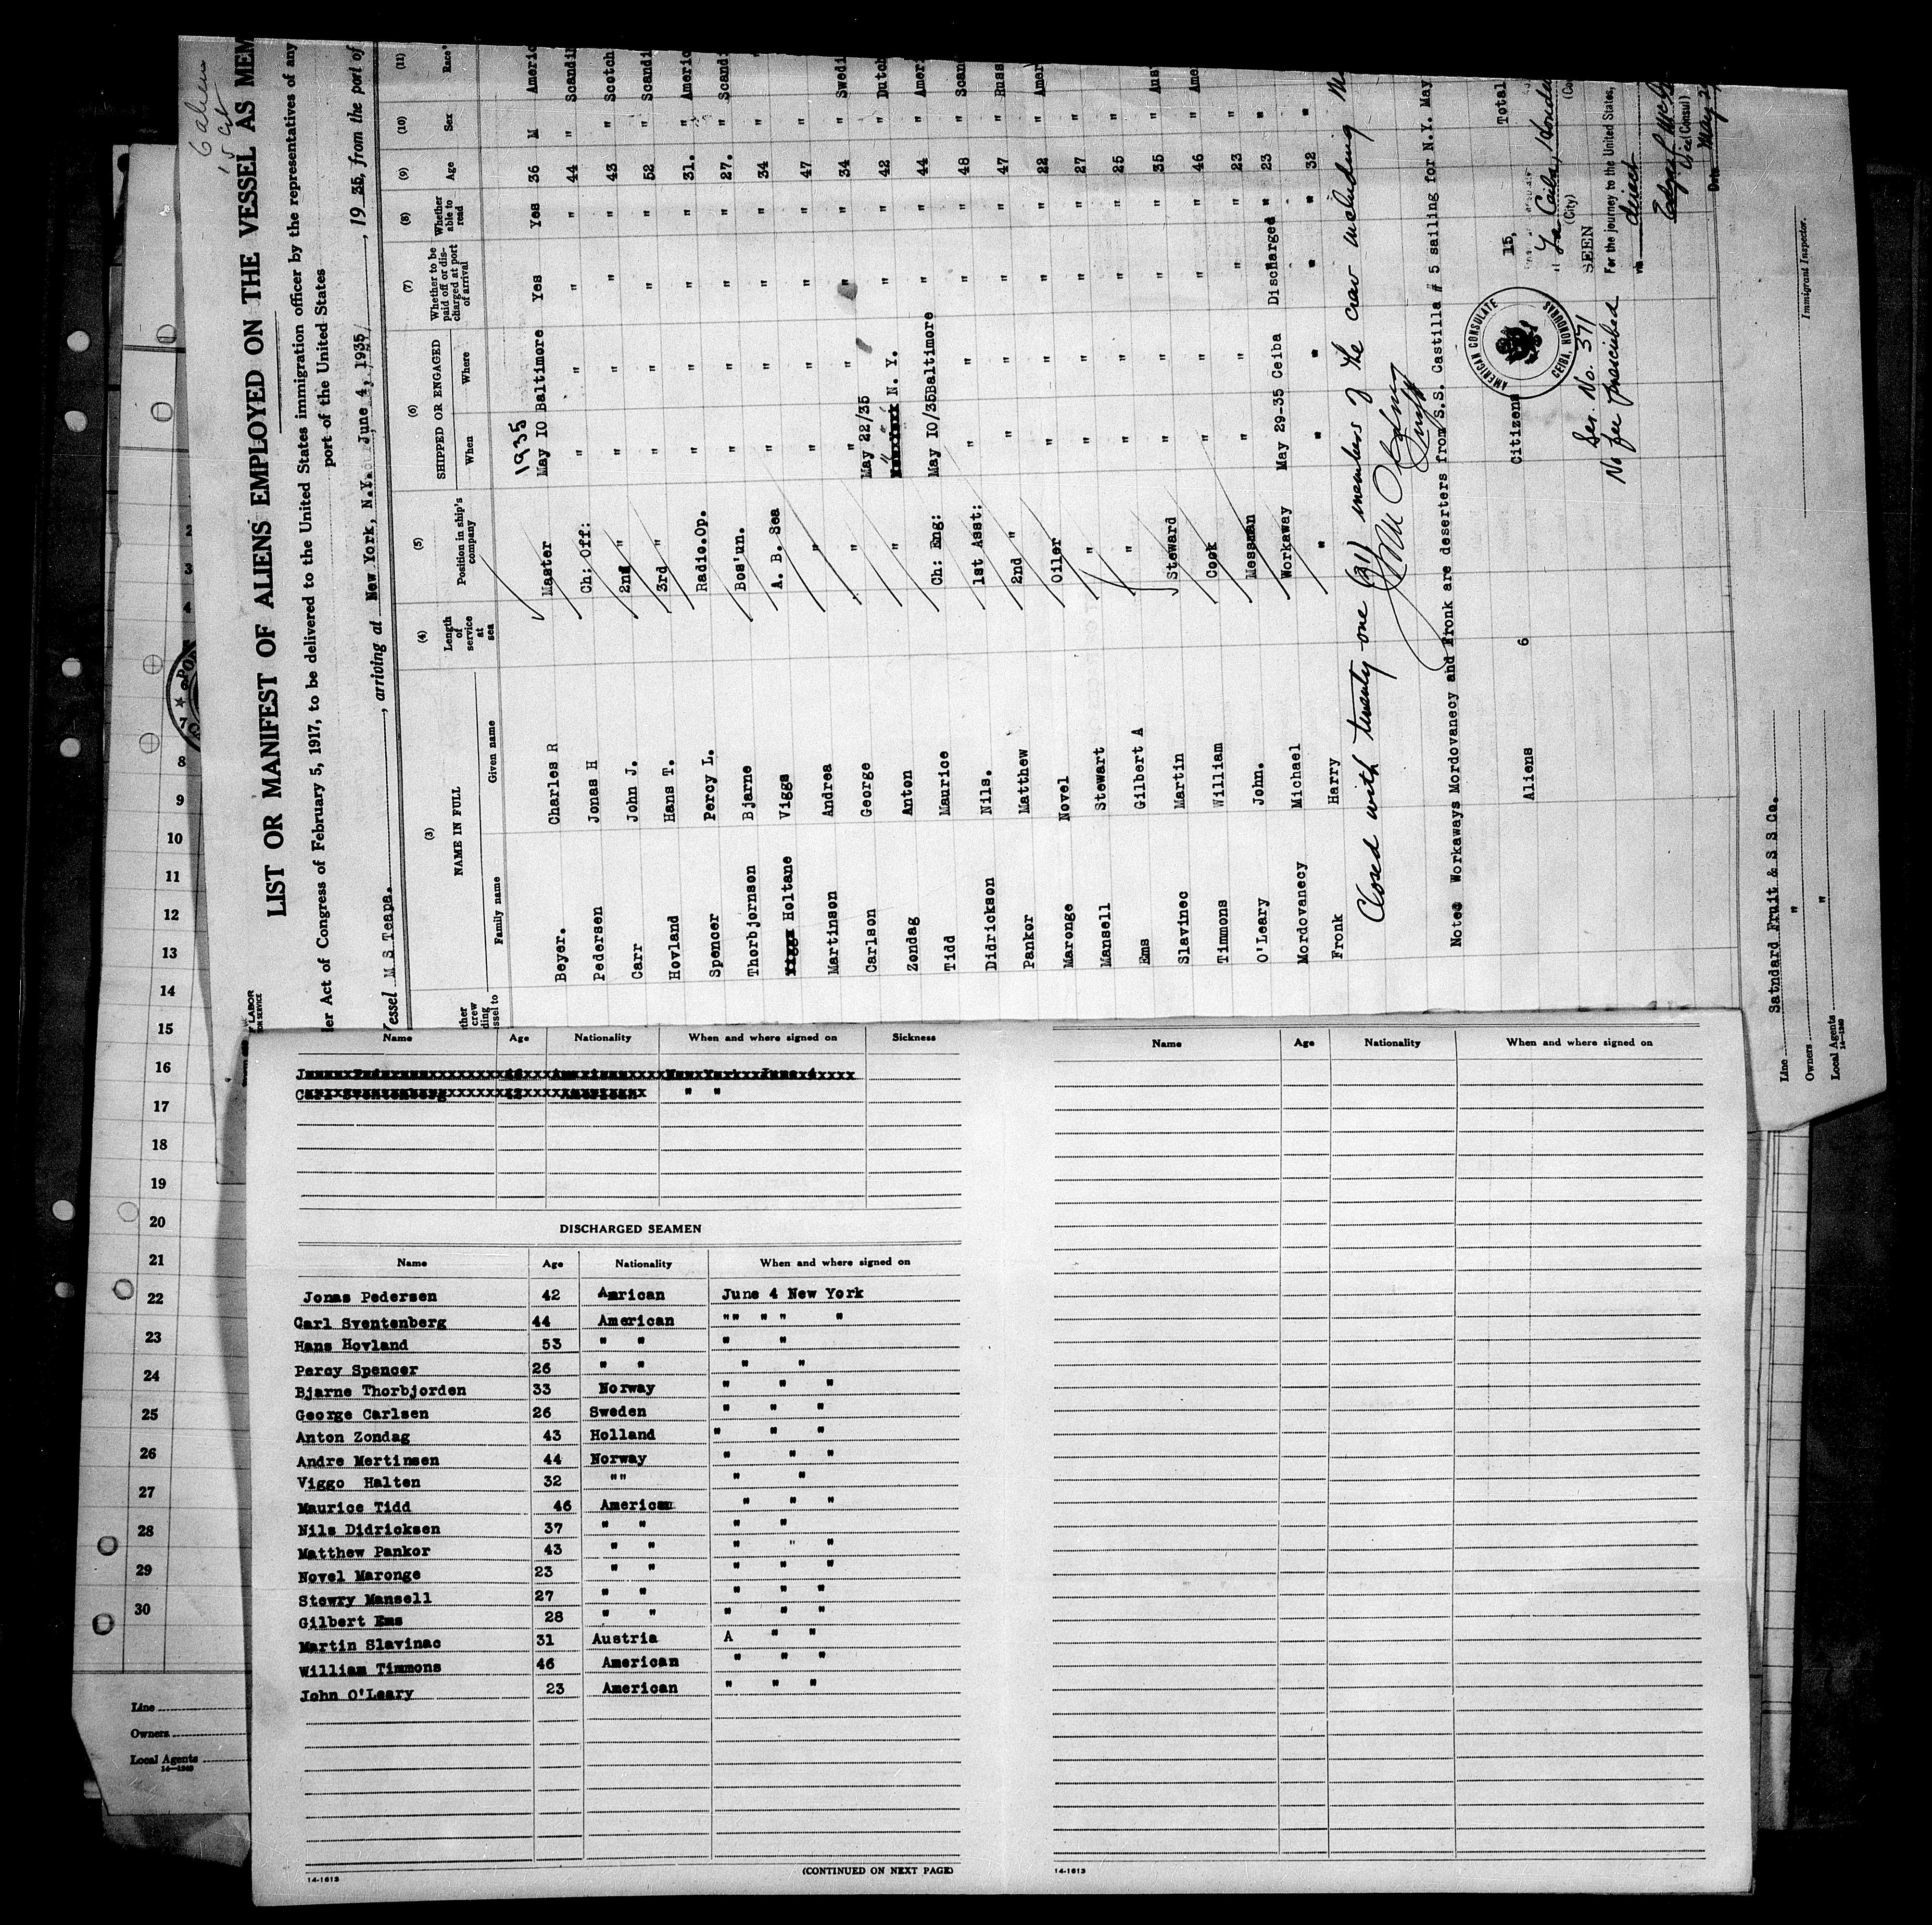 6 aliens
15 Cit
LIST OR MANIFEST OF ALIENS EMPLOYED ON THE VESSEL AS MEM
der Act of Congress of February 5, 1917, to be delivered to the United States immigration officer by the representatives of any
port of the United States
Vessel M S Teapa. , arriving at New York, N.Y. June 4, 1935 , 19 35, from the port of
(3) (4) (5) (6) (7) (8) (9) (10) (11)
NAME IN FULL Length of service at sea Position in ship's company SHIPPED OR ENGAGED Whether to be paid off or discharged at port of arrival Whether able to read Age Sex Race*
Family name Given name When Where
1935
Beyer. Charles R Master May 10 Baltimore Yes Yes 36 M Americ
Pedersen Jonas H Ch: Off: " " " " 44 " Scandi
Carr John J. 2nd " " " " " 43 " Scotch
Hovland Hans T. 3rd " " " " " 52 " Scandi
Spencer Percy L. Radio.Op. " " " " 31. " Americ
Thorbjornson Bjarne Bos'un. " " " " 27. " Scandi
Holtane Viggs A. B. Sea " " " " 34 " "
Martinson Andrea " " " " " 47 "
Carlson George " May 22/35 " " " 34 " Swedi
Zondag Anton " " N. Y. " " 42 " Dutch
Tidd Maurice Ch: Eng: May 10/35Baltimore " " 44 " Amer
Didrickson Nils. 1st Asst: " " " " 48 " Scand
Pankor Matthew 2nd " " " " " 47 " Russ
Maronge Novel Oiler " " " " 22 " Amer
Mansell Stewart " " " " " 27 "
Ems Gilbert A " " " " " 25 "
Slavinec Martin Steward " " " " 35 " Aus
Timmons William Cook " " " " 46 " Ame
O'Leary John. Messman " " " " 23 "
Mordovanecy Michael Workaway May 29-35 Ceiba Discharged " 23 "
Fronk Harry " " " " " 32 "
Closed with twenty-one (21) members of the crew including
Note Workaways Mordovanecy and Fronk are deserters from S.S. Castilla # 5 sailing for N.Y. May
Aliens 6 Citizens 15, Total
AMERICAN CONSULATE
CEIBA, HONDURAS
La Ceiba, Hondu
(City)
SEEN
Ser. No. 371
No fee prescribed
For the journey to the United States,
via direct
(Vice Consul)
Date May 2
Immigrant Inspector.
Line Satndard Fruit & S S Co.
Owners "
Local Agents "
14-1240
LABOR
ON SERVICE
2
3
4
7
8
9
10
11
12
13
14
15
16
17
18
19
20
21
22
23
24
25
26
27
28
29
30
Line
Owners
Local Agents
14-1240
Name Age Nationality When and where signed on Sickness
Carl Sventenberg 42 American " "
DISCHARGED SEAMEN
Name Age Nationality When and where signed on
Jonas Pedersen 42 Amrican June 4 New York
Carl Sventenberg 44 American "" " " "
Hans Hovland 53 " " " "
Percy Spencer 26 " " " "
Bjarne Thorbjorden 33 Norway " " "
George Carlsen 26 Sweden " " "
Anton Zondag 43 Holland " " "
Andre Mertinsen 44 Norway " " "
Viggo Halten 32 "" " "
Maurice Tidd 46 American " " "
Nils Didricksen 37 " " " "
Matthew Pankor 43 " " " " "
Novel Maronge 23 " " " " "
Stewry Mansell 27 " " " " "
Gilbert Ems 28 " " " " "
Martin Slavinac 31 Austria A " "
William Timmons 46 American " " "
John O'Leary 23 American " " "
(CONTINUED ON NEXT PAGE)
14-1613
Name Age Nationality When and where signed on
14-1613